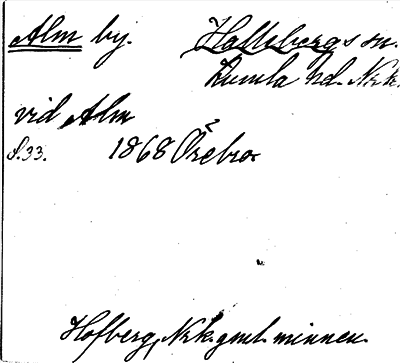 Alm by. Hallsbergs sn.
Kumla hd. Nrk.
vid Alm
s. 33. 1868 Örebro
Hofberg, Nrk. gml. minnen.